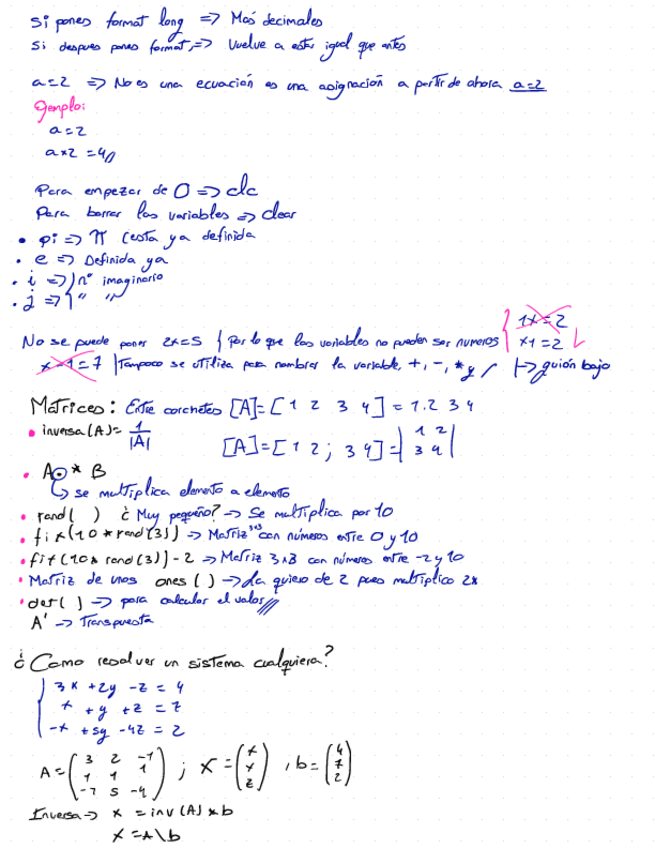 Si pones format long => Más decimales
Si despues pones format, => Vuelve a estar igual que antes
a=2 => No es una ecuación es una asignación a partir de ahora a=2
Ejemplo:
a=2
a*2 =4//
Para empezar de 0 => clc
Para borrar las variables => clear
• pi => π (esta ya definida
• e => Definida ya
• i => } nº imaginario
• j => } " "
No se puede poner 2x=5 { Por lo que las variables no pueden ser numeros { 1x=2
x1=2
x-1=7 | Tampoco se utiliza para nombrar la variable, +, -, * y / |-> guión bajo
Matrices: Entre corchetes [A]=[1 2 3 4] = 1.2 3 4
• inversa(A)= 1/|A|
[A]=[1 2; 3 4]=| 1 2
3 4 |
• A.* B
-> se multiplica elemento a elemento
• rand( ) ¿Muy pequeño? -> Se multiplica por 10
• fix(10*rand(3)) -> Matriz 3x3 con números entre 0 y 10
• fit(10*rand(3))-2 -> Matriz 3x3 con números entre -2 y 10
• Matriz de unos ones( ) -> La quiero de 2 pues multiplico 2*
• det( ) -> para calcular el valor//
A' -> Transpuesta
¿Como resolver un sistema cualquiera?
{ 3x +2y -z = 4
x +y +z = 7
-x +5y -4z = 2
A=( 3 2 -1
1 1 1
-1 5 -4 ) ; X=( x
y
z ) , b=( 4
7
2 )
Inversa-> x =inv(A)*b
x =A\b